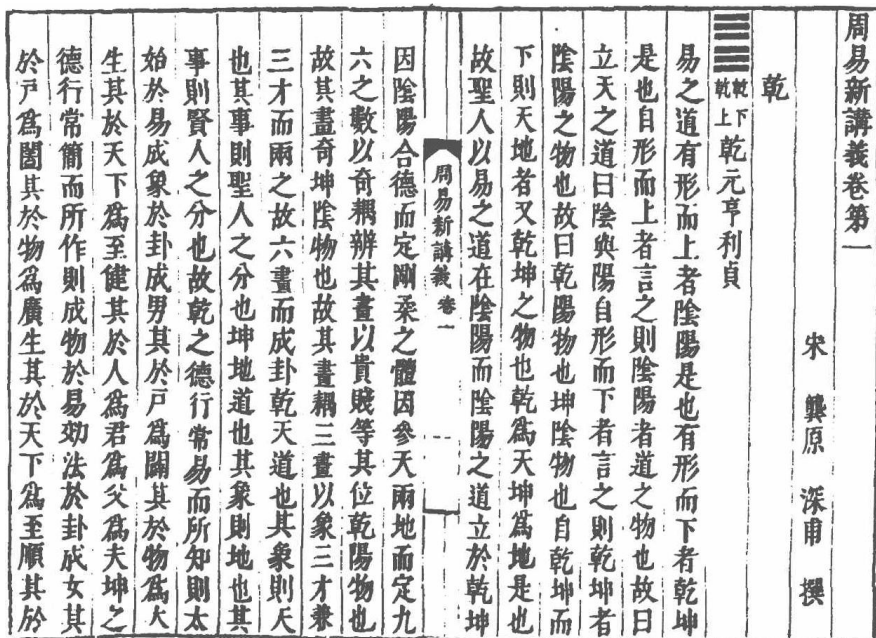 周易新講義卷第一
宋 龔原 深甫 撰
乾
乾下
乾上 乾元亨利貞
易之道有形而上者陰陽是也有形而下者乾坤
是也自形而上者言之則陰陽者道之物也故曰
立天之道曰陰與陽自形而下者言之則乾坤者
陰陽之物也故曰乾陽物也坤陰物也自乾坤而
下則天地者又乾坤之物也乾爲天坤爲地是也
故聖人以易之道在陰陽而陰陽之道立於乾坤
周易新講義 卷一
因陰陽合德而定剛柔之體因參天兩地而定九
六之數以奇耦辨其畫以貴賤等其位乾陽物也
故其畫奇坤陰物也故其畫耦三畫以象三才兼
三才而兩之故六畫而成卦乾天道也其象則天
也其事則聖人之分也坤地道也其象則地也其
事則賢人之分也故乾之德行常易而所知則太
始於易成象於卦成男其於戸爲闢其於物爲大
生其於天下爲至健其於人爲君爲父爲夫坤之
德行常簡而所作則成物於易効法於卦成女其
於戸爲闔其於物爲廣生其於天下爲至順其於